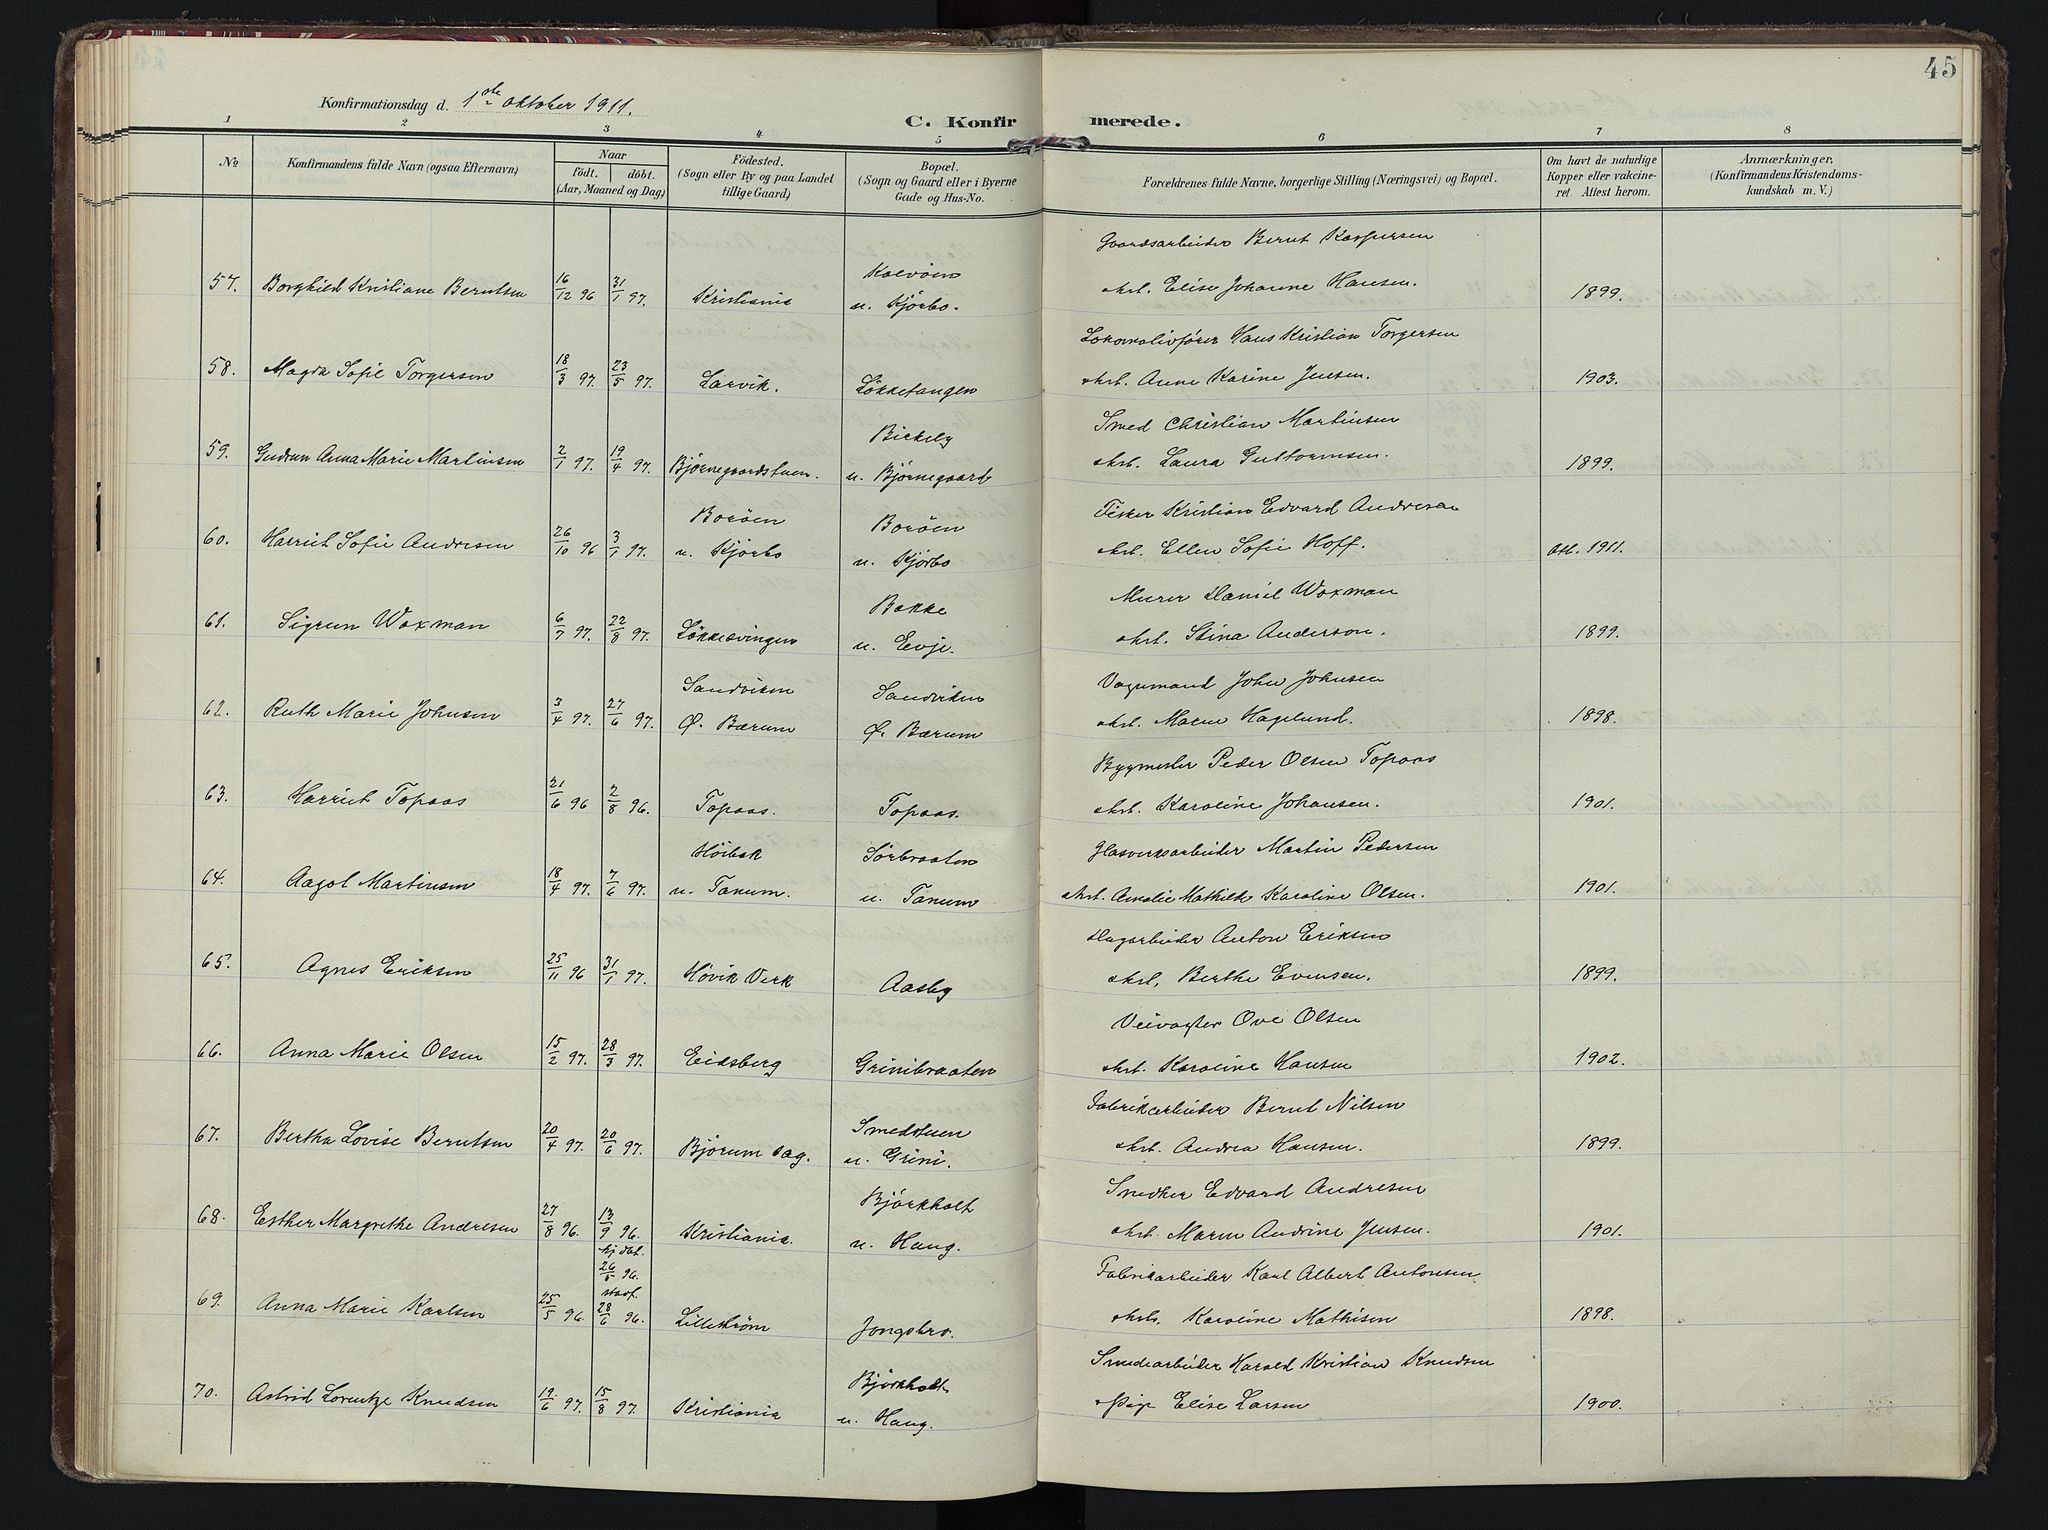 45
Konfirmationsdag d. 1ste oktober 1911.
C. Konfirmerede.
1 2 3 4 5 6 7 8
No
Konfirmandens fulde Navn (ogsaa Efternavn)
Naar
födt. döbt.
(Aar, Maaned og Dag)
Födested.
(Sogn eller By og paa Landet
tillige Gaard)
Bopæl.
(Sogn og Gaard eller i Byerne
Gade og Hus-No.
Forældrenes fulde Navne, borgerlige Stilling (Næringsvei) og Bopæl.
Om havt de naturlige
Kopper eller vakcine-
ret. Attest herom.
Anmærkninger.
(Konfirmandens Kristendoms-
kundskab m. V.)
Gaardsarbeider Bernt Kaspersen
57. Borghild Kristiane Berntsen 16/12 96 31/1 97. Kristiania Kalvøen
u. Kjørbo. Elise Johanne Hansen. 1899.
Lokomotivfører Hans Kristian Torgersen
58. Magda Sofie Torgersen 18/3 97. 23/5 97. Larvik. Løkketangen Anne Karine Jensen. 1903.
Smed Christian Martinsen
59. Gudrun Anna Marie Martinsen 2/1 97. 19/4 97. Bjørnegaardstuen. Bickely
u. Bjørnegaard Laura Guttormsen. 1899.
Fisker Kristian Edvard Andresen
60. Harriet Sofie Andresen 26/10 96 3/1 97. Borøen
u. Kjørbo Borøen
u. Kjørbo Ellen Sofie Hoff. Att. 1911.
Murer Daniel Woxman
61. Sigrun Woxman 6/7 97. 22/8 97. Løkkesvingen Bakke
u. Evje. Stina Anderson. 1899.
Vognmand John Johnsen
62. Ruth Marie Johnsen 3/4 97. 27/6 97. Sandviken
Ø. Bærum Sandviken
Ø. Bærum Maren Hagelund. 1898.
Bygmester Peder Olsen Topaas
63. Harriet Topaas 21/6 96 2/8 96. Topaas. Topaas. Karoline Johansen. 1901.
Glasverksarbeider Martin Pedersen
64. Aagot Martinsen 18/4 97. 7/6 97. Høibak
u. Tanum. Sørbraaten
u. Tanum Amalie Mathilde Karoline Olsen. 1901.
Dagarbeider Anton Eriksen
65. Agnes Eriksen 25/11 96 31/1 97. Høvik Verk Aasby Berthe Evensen. 1899.
Veivogter Ove Olsen
66. Anna Marie Olsen 15/2 97. 28/3 97. Eidsberg Grinibraaten Karoline Hansen 1902.
Fabrikarbeider Bernt Nilsen
67. Bertha Lovise Berntsen 20/4 97. 20/6 97. Bjørum sag. Smedstuen
u. Grini. Andrea Hansen. 1899.
Snedker Edvard Andresen
68. Esther Margrethe Andresen 27/8 96. 13/9 96. Kristiania. Bjørkholt
u. Haug. Maren Andrine Jensen. 1901.
Fabrikarbeider Karl Albert Antonsen
69. Anna Marie Karlsen 25/5 96. hj.døbt.
26/5 96.
stadf.
28/6 96. Lillestrøm Jongsbro. Karoline Mathisen 1898.
Smedearbeider Harald Kristian Knudsen
70. Astrid Lorentze Knudsen 19/6 97. 15/8 97. Kristiania Bjørkholt
u. Haug. Pige Elise Larsen 1900.